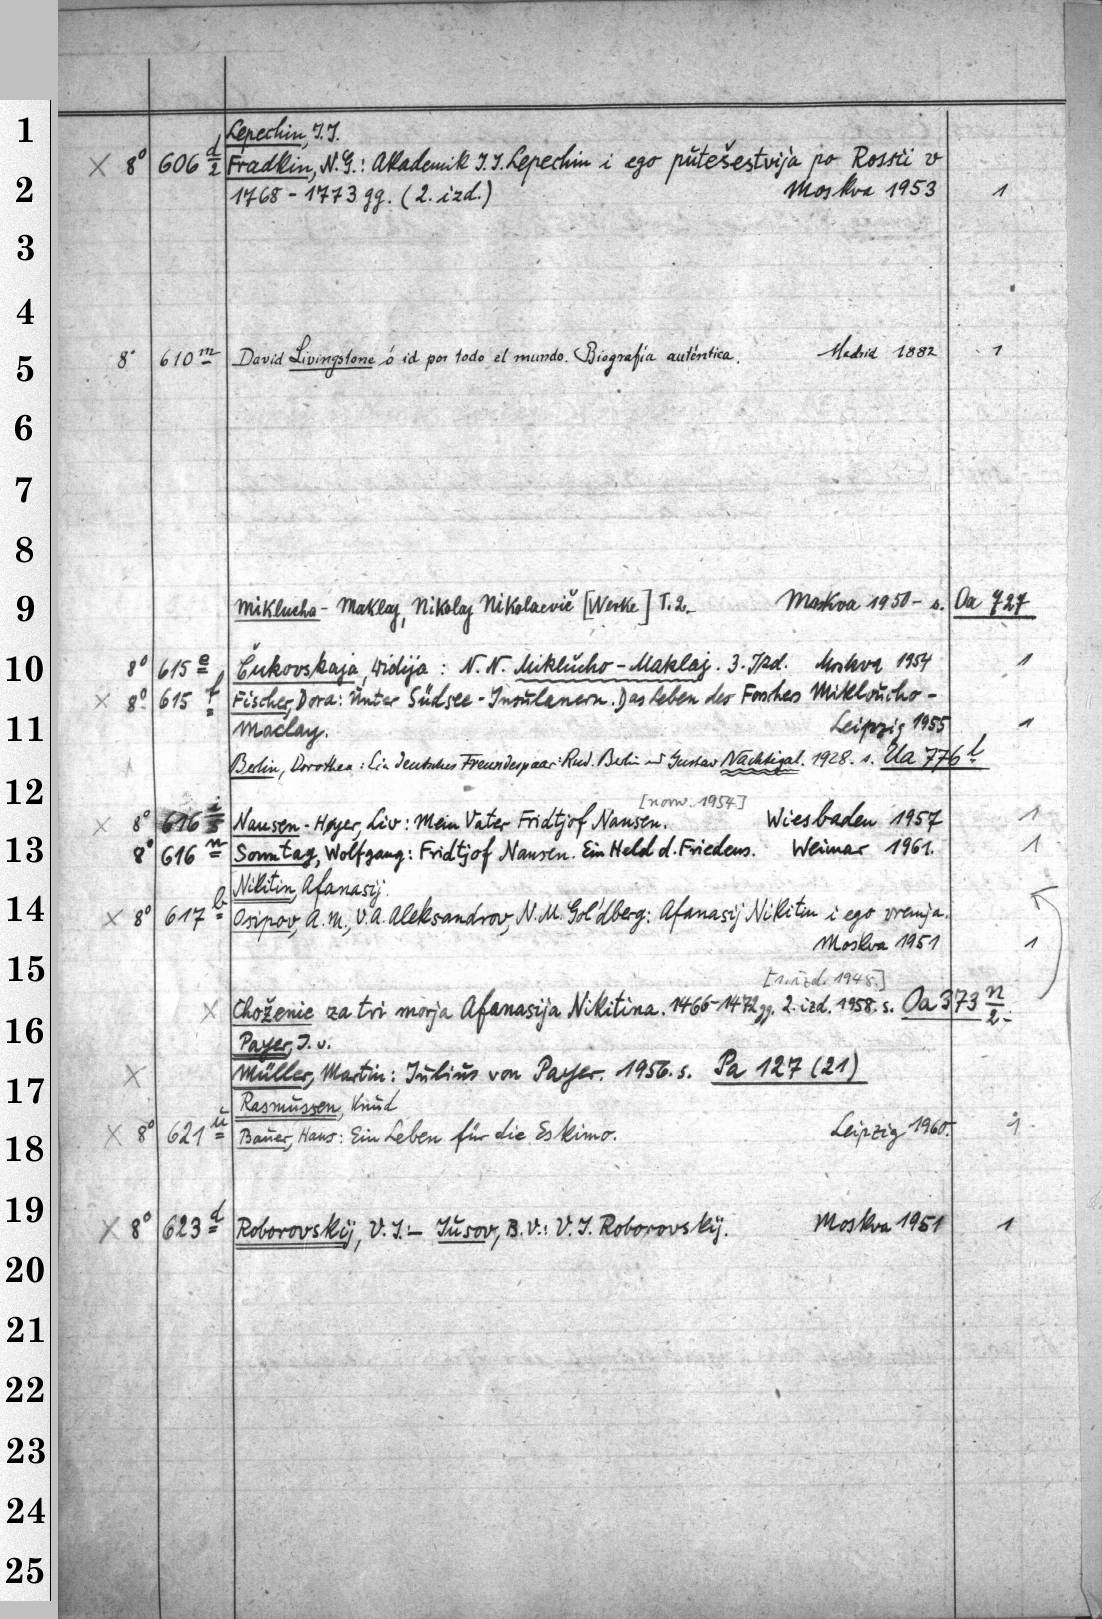 1
Lepechin, I.I.
× 8° 606 d/2 Fradkin, N.G.: Akademik I.I. Lepechin i ego putešestvija po Rossii v
2
1768-1773 gg. (2. izd.) Moskva 1953 1
3
4
8° 610 m David Livingstone ó id por todo el mundo. Biografía auténtica. Madrid 1882 1
5
6
7
8
9 Miklucha-Maklaj, Nikolaj Nikolaevič [Werke] T.2. Moskva 1950- s. Oa 727
10 8° 615 e Čukovskaja, Lidija: N.N. Miklucho-Maklaj. 3. Izd. Moskva 1954 1
× 8° 615 f Fischer, Dora: Unter Südsee-Insulanern. Das Leben des Forschers Mikloucho-
11 Maclay. Leipzig 1955 1
Berlin, Dorothea: Ein deutsches Freundespaar: Rud. Berlin und Gustav Nachtigal. 1928. s. Ua 776 l
12
[norw. 1954]
× 8° 616 i Nansen-Høyer, Liv: Mein Vater Fridtjof Nansen. Wiesbaden 1957 1
13 8° 616 n Sonntag, Wolfgang: Fridtjof Nansen. Ein Held d. Friedens. Weimar 1961. 1
Nikitin, Afanasij.
14 × 8° 617 b Osipov, A.M., V.A. Aleksandrov, N.M. Gol'dberg: Afanasij Nikitin i ego vremja.
Moskva 1951 1
15
[1. izd. 1948.]
× Choženie za tri morja Afanasija Nikitina. 1466-1472 gg. 2. izd. 1958. s. Oa 373 n/2.
16
Payer, J. v.
17 × Müller, Martin: Julius von Payer. 1956. s. Pa 127 (21)
Rasmussen, Knud
18 × 8° 621 u Bauer, Hans: Ein Leben für die Eskimo. Leipzig 1960. 1
19
× 8° 623 d Roborovskij, V.I. - Jusov, B.V.: V.I. Roborovskij. Moskva 1951 1
20
21
22
23
24
25